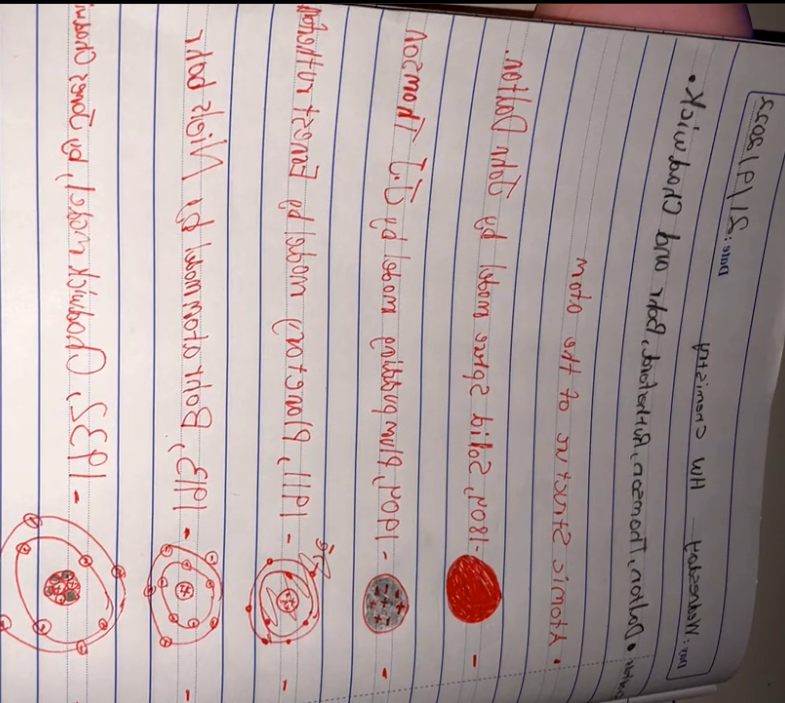 Day: Wednesday HW Chemistry Date: 21/9/2022
• Dalton, Thomson, Rutherford, Bohr and Chadwick •
• Atomic Structure of the atom
- 180⁠4, Solid Sphere model by John Dalton.
- 1904, Plum pudding model by J.J Thomson
- 1911, Planetary model by Ernest rutherford
- 1913, Bohr atom model by Niels bohr
- 1932, Chadwick model, by James Chadwi